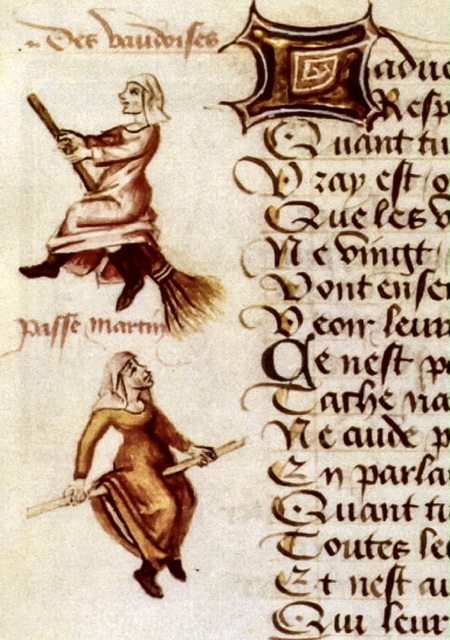 Des vaudoises
passe Martin
Ladue
Resp
Quant tu
Vray est o
Que les v
Ne vingt
Vont ense
Veoir leur
Ce nest p
Tache na
Ne aude p
En parla
Quant tu
Toutes le
Et nest au
Qui leur